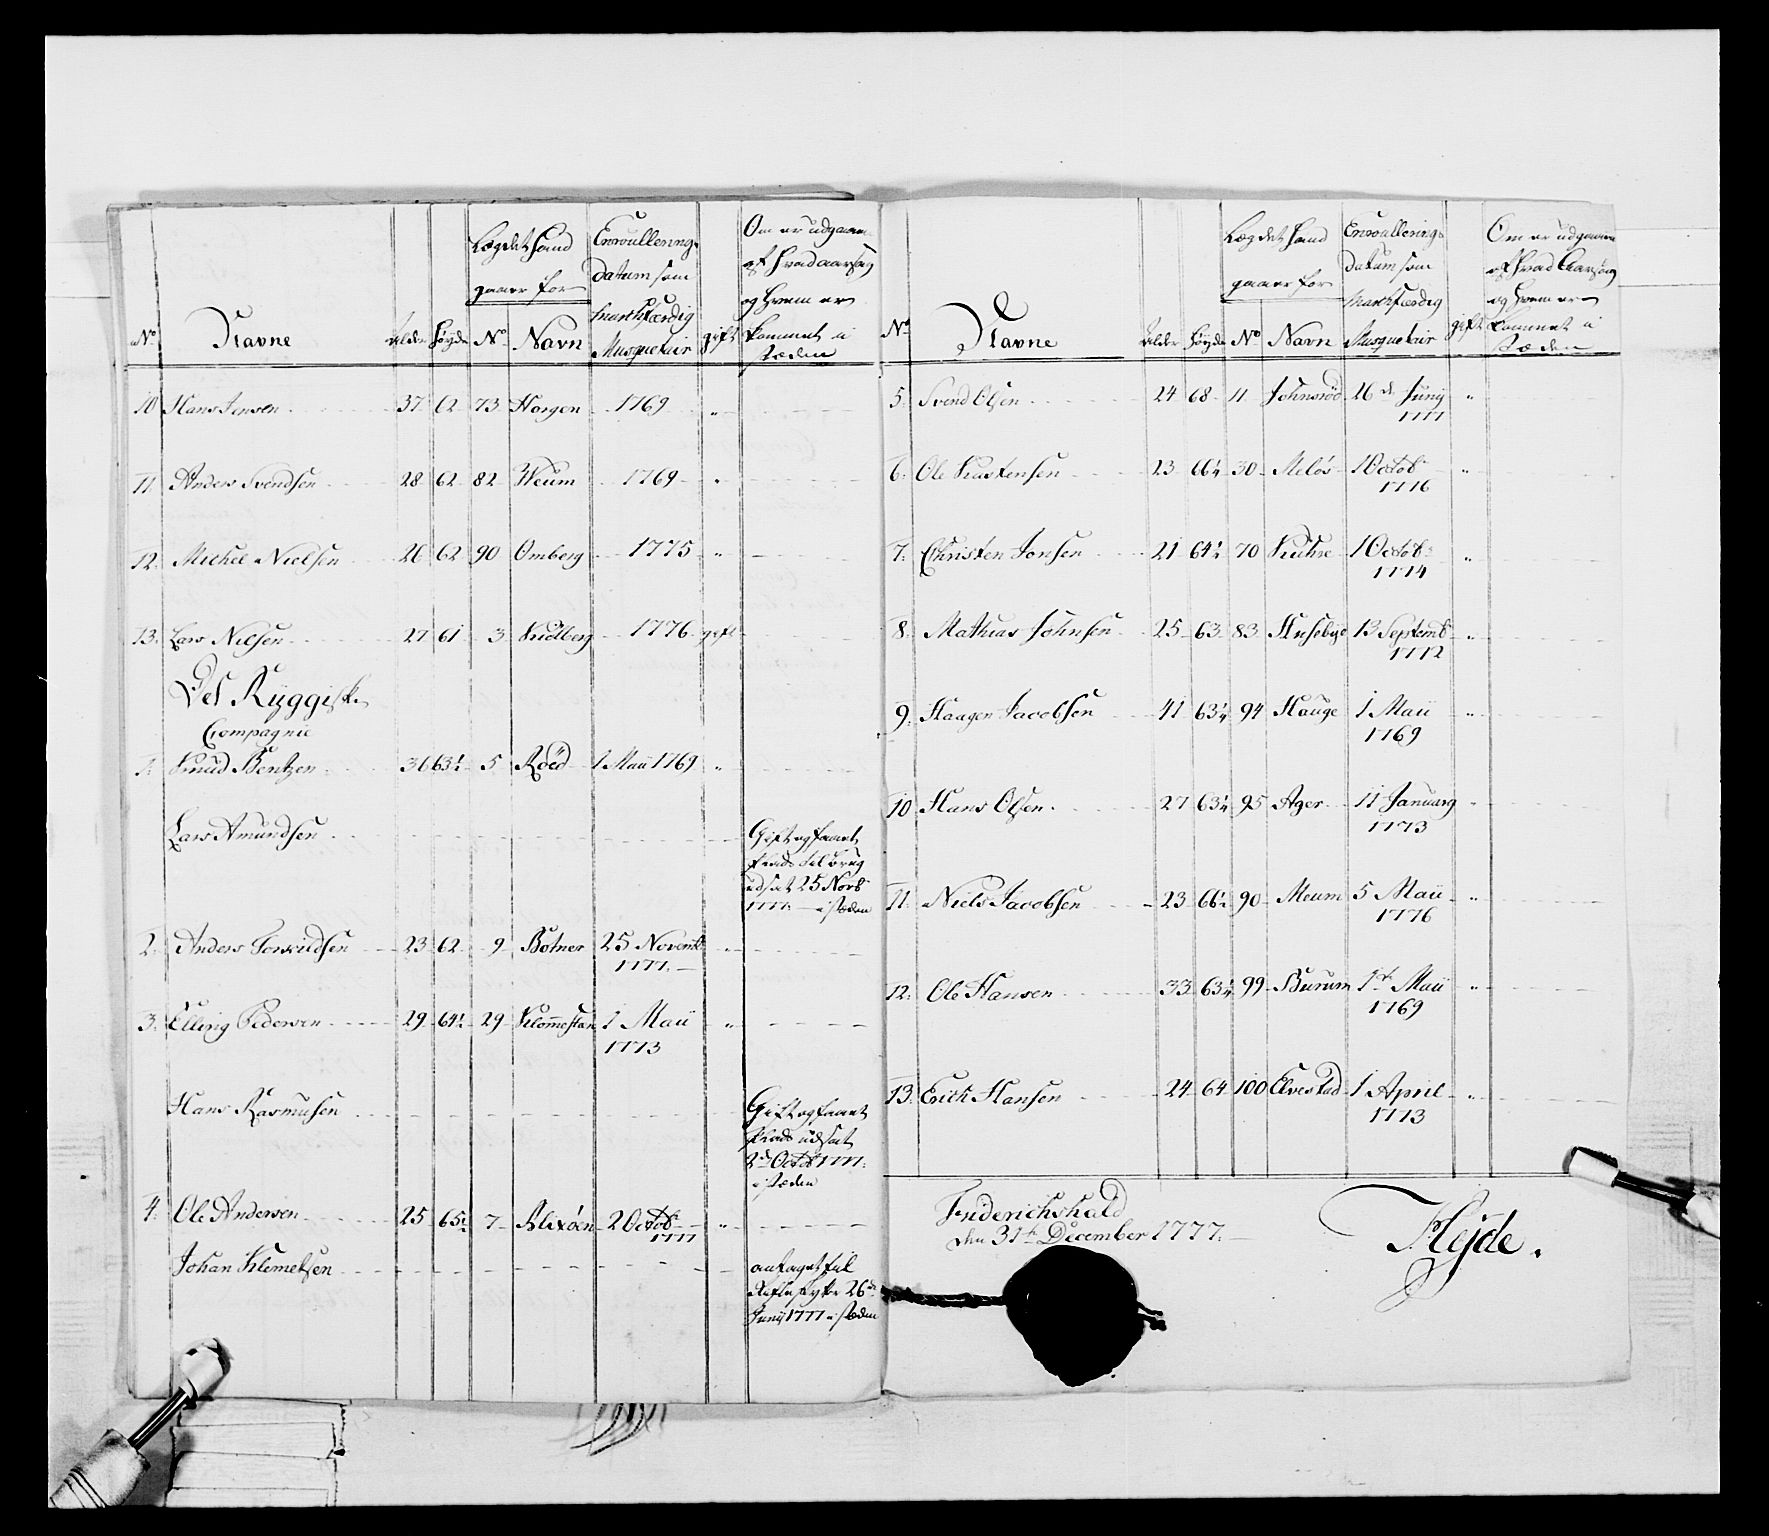 No
Navne
Alder
Høyde
Lægdet hand
gaaer for
No
Navn
Enroullering
datum som
marchfærdig
Musqueteir
gift
Om er udgaaen
af hvad aarsag
og hvem er
kommet i
stæden
10 Hans Jensen 37 62 73 Horgen 1769 "
11. Anders Svendsen 28 62 82 Weum 1769 "
12. Michel Nielsen 26 62 90 Omberg 1775 "
13. Lars Nilsen 27 61 3 Kidlberg 1776 gift
Det Ryggiske
Compagnie
1. Knud Bentzen 36 63 1/2 5 Röed 1 Maii 1769 "
Lars Amundsen
Gift og faaet
Plads til brug
udsat 25 Novb
1777. i stæden
2. Anders 23 62 9 Botner 25 Novemb
1777.
3. Elling Pedersen 29 64 1/2 29 Klommestan 1 Maii "
1773
Hans Rasmusen
Gift og faaet
Plads udsat
2d Octob 1777.
i stæden
4. Ole Andersen 25 65 1/2 7 Alixöen 2 Octob "
1777
Johan Klemetsen
antaget til
26de
Junij 1777 i stæden
No
Navne
Alder
Høyde
Lægdet hand
gaaer for
No
Navn
Enroullering
datum som
marchfærdig
Musqueteir
gift
Om er udgaaen
af hvad Aarsag
og hvem er
kommet i
stæden
5. Svend Olsen 24 68 11 Johnsröd 26de Junij "
1777
6. Ole Kastensen 23 66 1/4 30 Melös 1 Octob "
1776
7. Christen Jonsen 21 64 1/2 70 Kuhre 1 Octob "
1774
8. Mathias Johnsen 25 63 83 Husebye 13 Septemb "
1772
9. Haagen Jacobsen 41 63 1/4 94 Hauge 1 Maii "
1769
10 Hans Olsen 27 63 1/4 95 Ager 11 Januarij "
1773
11. Niels Jacobsen 23 66 1/2 90 Meum 5 Maii "
1776
12. Ole Hansen 33 63 1/4 99 Burum 1ste Maii "
1769
13. Erich Hansen 24 64 100 Elvestad 1 April "
1773
Friderichshald
den 31te December 1777.
Hejde.